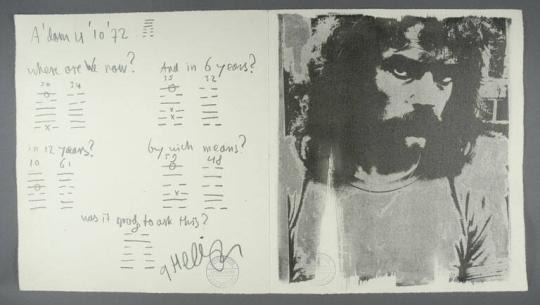 A'dam 11'10'72
where are we now?
And in 6 years?
50 34
35 32
in 12 years?
by wich means?
10 61
59 48
was it good to ask this?